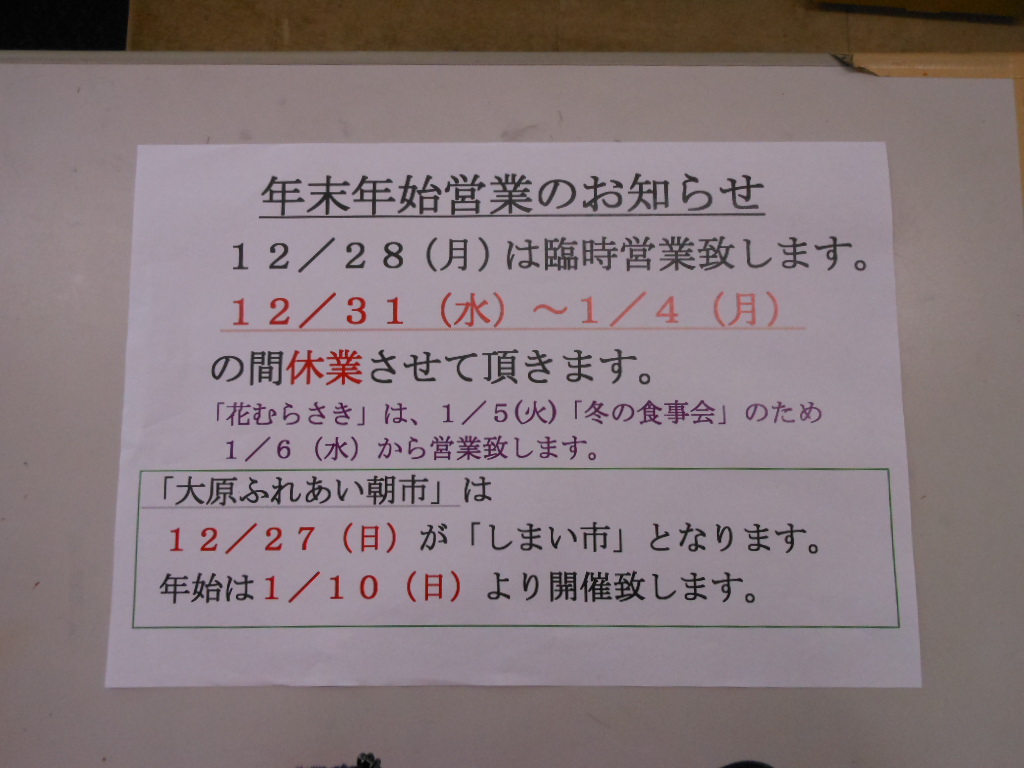 年末年始営業のお知らせ
１２／２８（月）は臨時営業致します。
１２／３１（水）～１／４（月）
の間休業させて頂きます。
「花むらさき」は、１／５(火)「冬の食事会」のため
１／６（水）から営業致します。
「大原ふれあい朝市」は
１２／２７（日）が「しまい市」となります。
年始は１／１０（日）より開催致します。